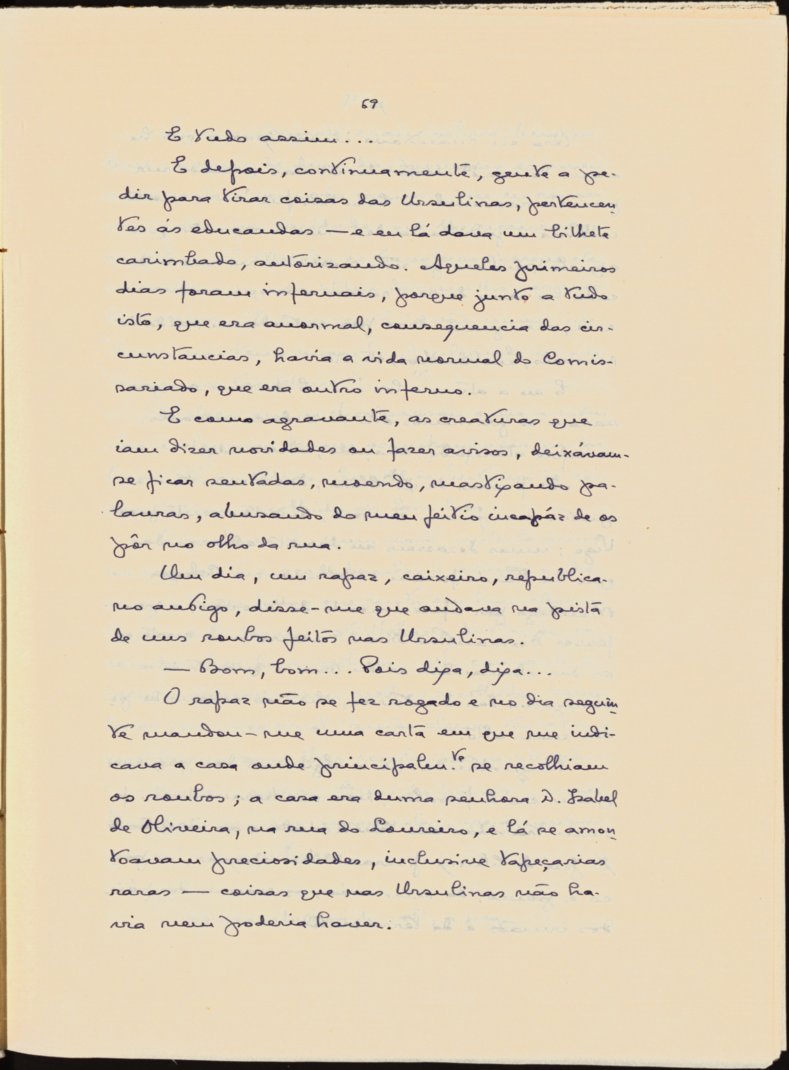 69
E tudo assim...
E depois, continuamente, gente a pe-
dir para tirar coisas das Ursulinas, pertencen-
tes ás educandas — e eu lá dava um bilhete
carimbado, autorizando. Aqueles primeiros
dias foram infernais, porque junto a tudo
isto, que era anormal, consequencia das cir-
cunstancias, havia a vida normal do Comis-
sariado, que era outro inferno.
E como agravante, as creaturas que
iam dizer novidades ou fazer avisos, deixávam-
se ficar sentadas, moendo, mastigando pa-
lavras, abusando do meu feitio incapáz de os
pôr no olho da rua.
Um dia, um rapaz, caixeiro, republica-
no antigo, disse-me que andava na pista
de uns roubos feitos nas Ursulinas.
— Bom, bom... Pois diga, diga...
O rapaz não se fez rogado e no dia seguin-
te mandou-me uma carta em que me indi-
cava a casa onde principalm.te se recolhiam
os roubos; a casa era duma senhora D. Isabel
de Oliveira, na rua do Loureiro, e lá se amon-
toavam preciosidades, inclusive tapeçarias
raras — coisas que nas Ursulinas não ha-
via nem poderia haver.